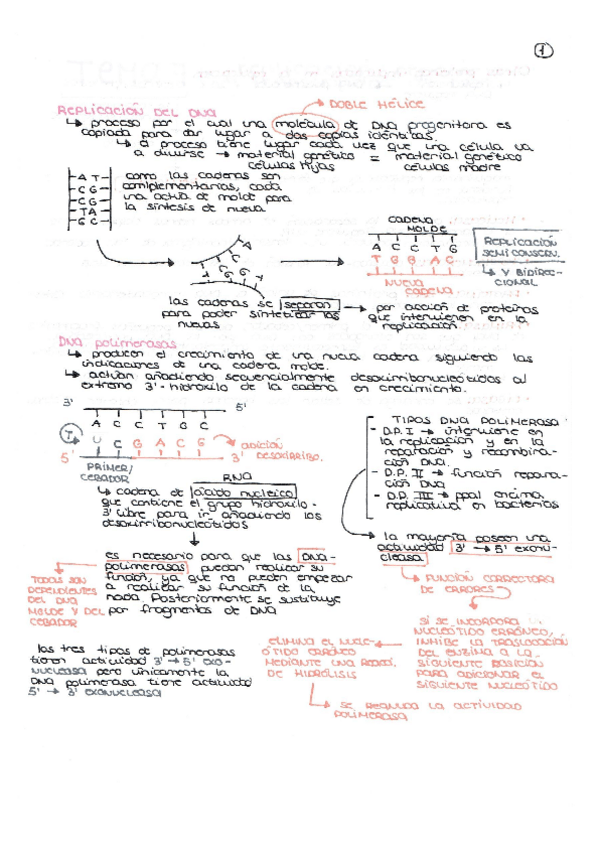 1
DOBLE HÉLICE
REPLICACIÓN DEL DNA
↳ proceso por el cual una molécula de DNA progenitora es
copiada para dar lugar a dos copias idénticas.
↳ el proceso tiene lugar cada vez que una célula va
a dividirse → material genético = material genético
células hijas células madre
A T
C G
C G
T A
G C
como las cadenas son
complementarias, cada
una actúa de molde para
la síntesis de nueva
CADENA
MOLDE
A C C T G
T G G A C
NUEVA
CADENA
REPLICACIÓN
SEMICONSERV.
↳ Y BIDIREC-
CIONAL
las cadenas se separan
para poder sintetizar las
nuevas
→ por acción de proteínas
que intervienen en la
replicación
DNA polimerasas
↳ producen el crecimiento de una nueva cadena siguiendo las
indicaciones de una cadena molde.
↳ actúan añadiendo secuencialmente desoxirribonucleótidos al
extremo 3'-hidroxilo de la cadena en crecimiento.
3' 5'
A C C T G C
U C G A C G
5'
ADICIÓN
DESOXIRRIBO.
PRIMER/
CEBADOR
RNA
↳ cadena de ácido nucleico
que contiene el grupo hidroxilo-
3' libre para ir añadiendo los
desoxirribonucleótidos
TIPOS DNA POLIMERASA
- D.P. I → interviene en
la replicación y en la
reparación y recombina-
ción DNA.
- D.P. II → función repara-
ción DNA
- D.P. III → ppal encima
replicativa en bacterias
↳ la mayoría poseen una
actividad 3' → 5' exonu-
cleasa
↳ FUNCIÓN CORRECTORA
DE ERRORES
es necesario para que las DNA-
polimerasas puedan realizar su
función, ya que no pueden empezar
a realizar su función de la
nada. Posteriormente se sustituye
por fragmentos de DNA
TODAS SON
DEPENDIENTES
DEL DNA
MOLDE Y DEL
CEBADOR
SI SE INCORPORA UN
NUCLEÓTIDO ERRÓNEO,
INHIBE LA TRASLOCACIÓN
DEL ENZIMA A LA
SIGUIENTE POSICIÓN
PARA ADICIONAR EL
SIGUIENTE NUCLEÓTIDO
ELIMINA EL NUCLE-
ÓTIDO ERRÓNEO
MEDIANTE UNA REACC.
DE HIDRÓLISIS
↳ SE REANUDA LA ACTIVIDAD
POLIMERASA
los tres tipos de polimerasas
tienen actividad 3' → 5' exo-
nucleasa pero únicamente la
DNA polimerasa tiene actividad
5' → 3' exonucleasa